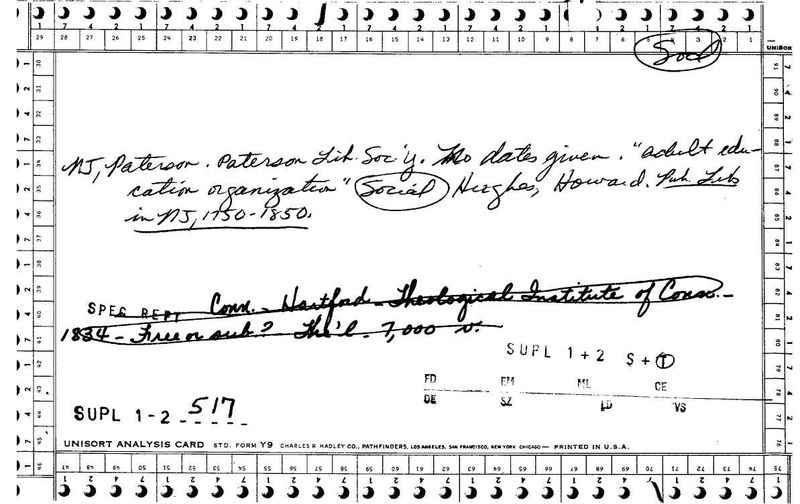 Social
NJ, Paterson. Paterson Lib. Soc'y. No dates given. "adult edu-
cation organization" Social Hughes, Howard. Pub. Libs
in NJ, 1750-1850.
SPEC REPT Conn. - Hartford - Theological Institute of Conn. -
1834 - Free or sub? The'l - 7,000 v.
SUPL 1+2 S+T
FD EM ML CE
DE SZ LD VS
SUPL 1-2 517
UNISORT ANALYSIS CARD STD. FORM Y9 CHARLES R HADLEY CO., PATHFINDERS, LOS ANGELES, SAN FRANCISCO, NEW YORK CHICAGO — PRINTED IN U.S.A.